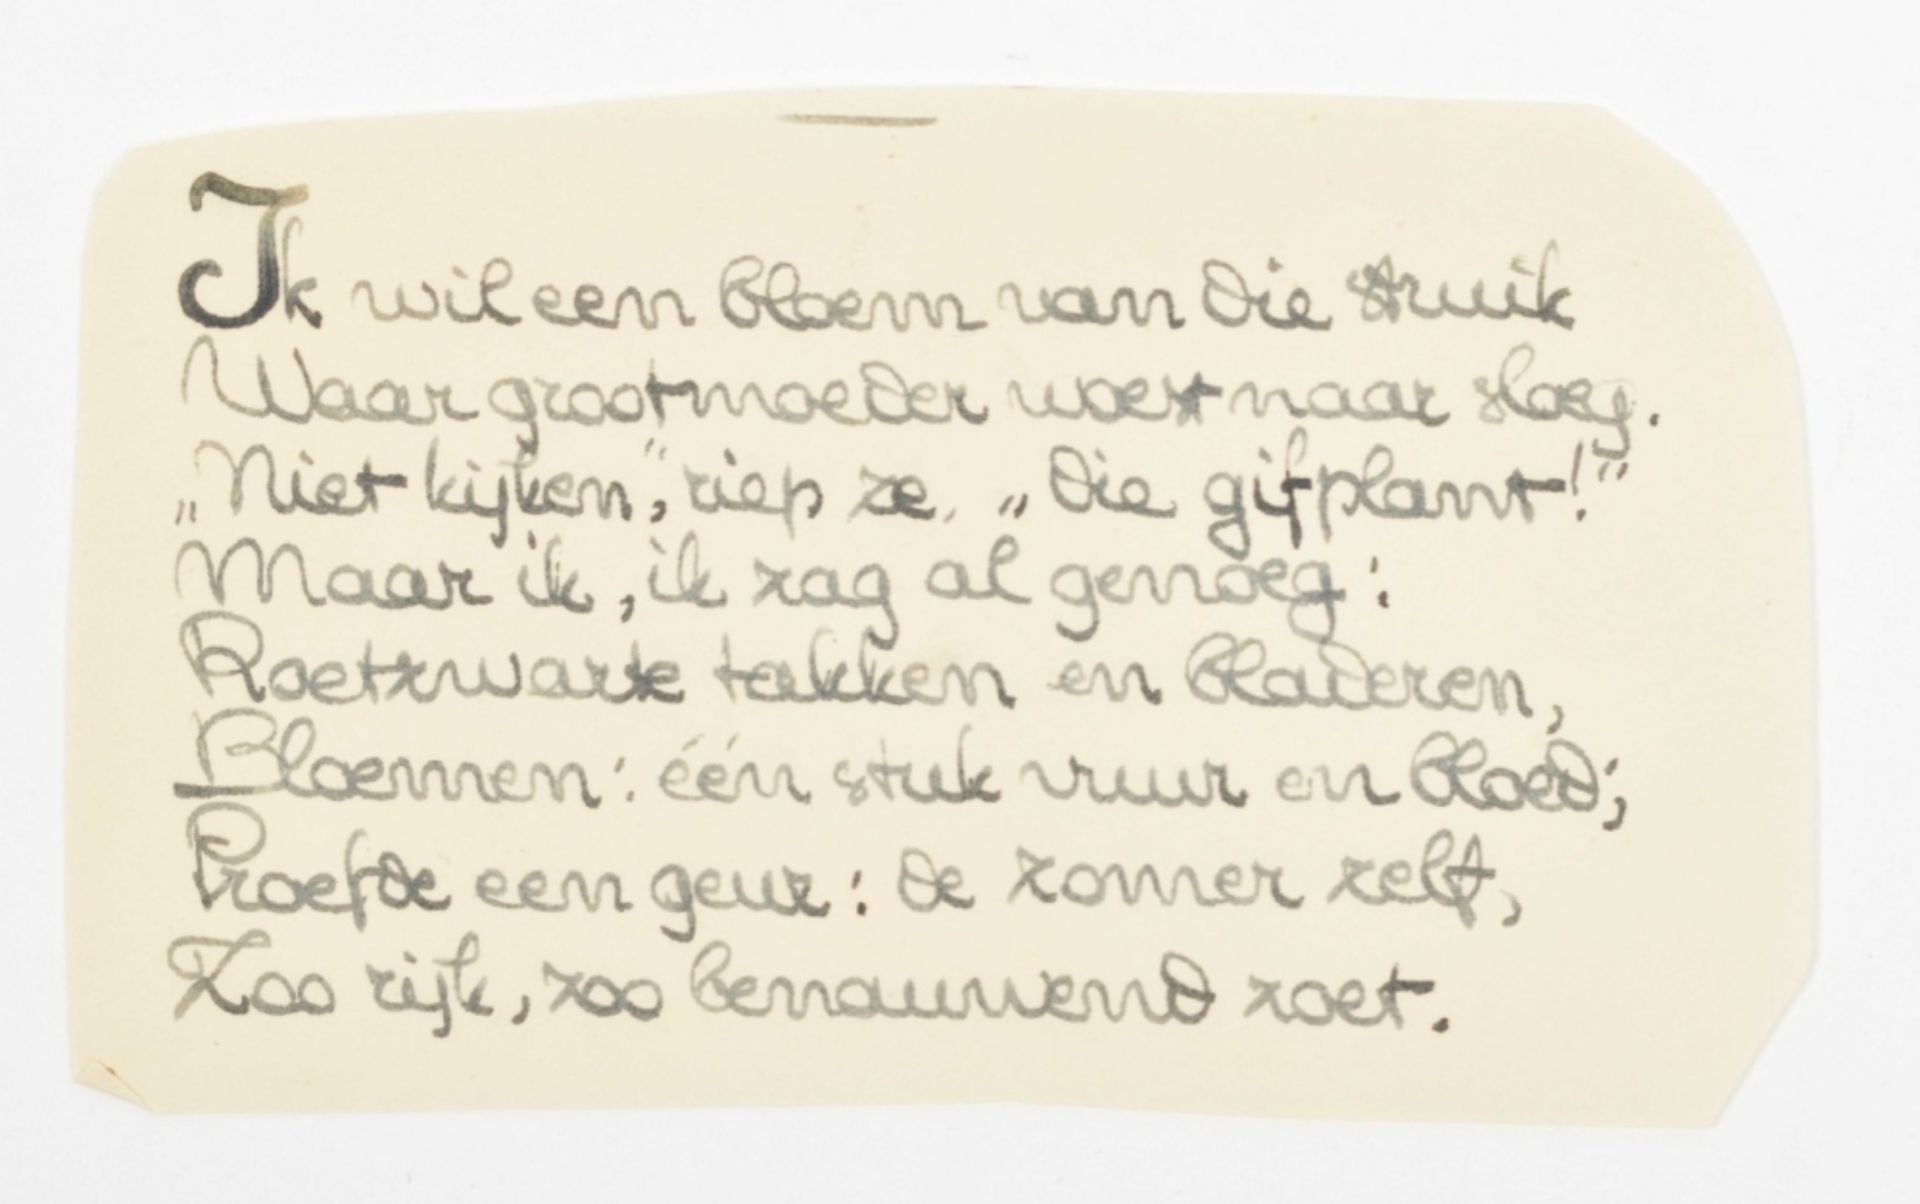 Ik wil een bloem van die struik
Waar grootmoeder woest naar sloeg.
„Niet kijken”, riep ze, „die gifplant!”
Maar ik, ik zag al genoeg:
Roetzwarte takken en bladeren,
Bloemen: één stuk vuur en bloed;
Proefde een geur: de zomer zelf,
Zoo rijk, zoo benauwend zoet.